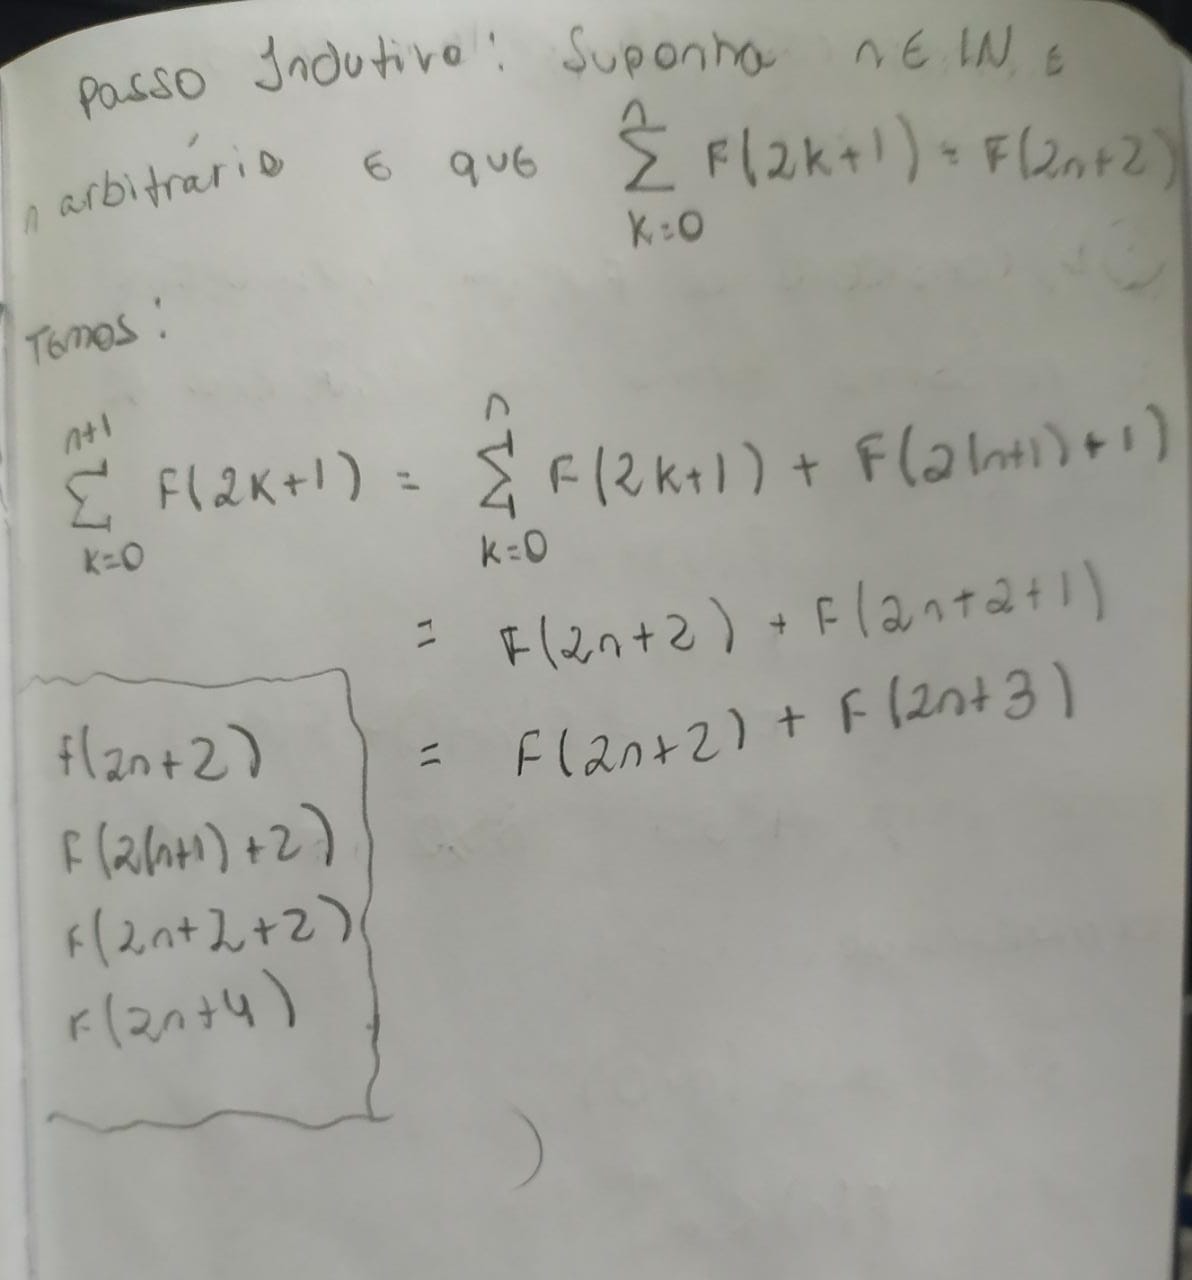 Passo Indutivo: Suponha n ∈ IN. E
n arbitrário E que ∑_{k=0}^{n} F(2k+1) = F(2n+2)
Temos:
∑_{k=0}^{n+1} F(2k+1) = ∑_{k=0}^{n} F(2k+1) + F(2(n+1)+1)
= F(2n+2) + F(2n+2+1)
= F(2n+2) + F(2n+3)
f(2n+2)
F(2(n+1)+2)
F(2n+2+2)
F(2n+4)
)